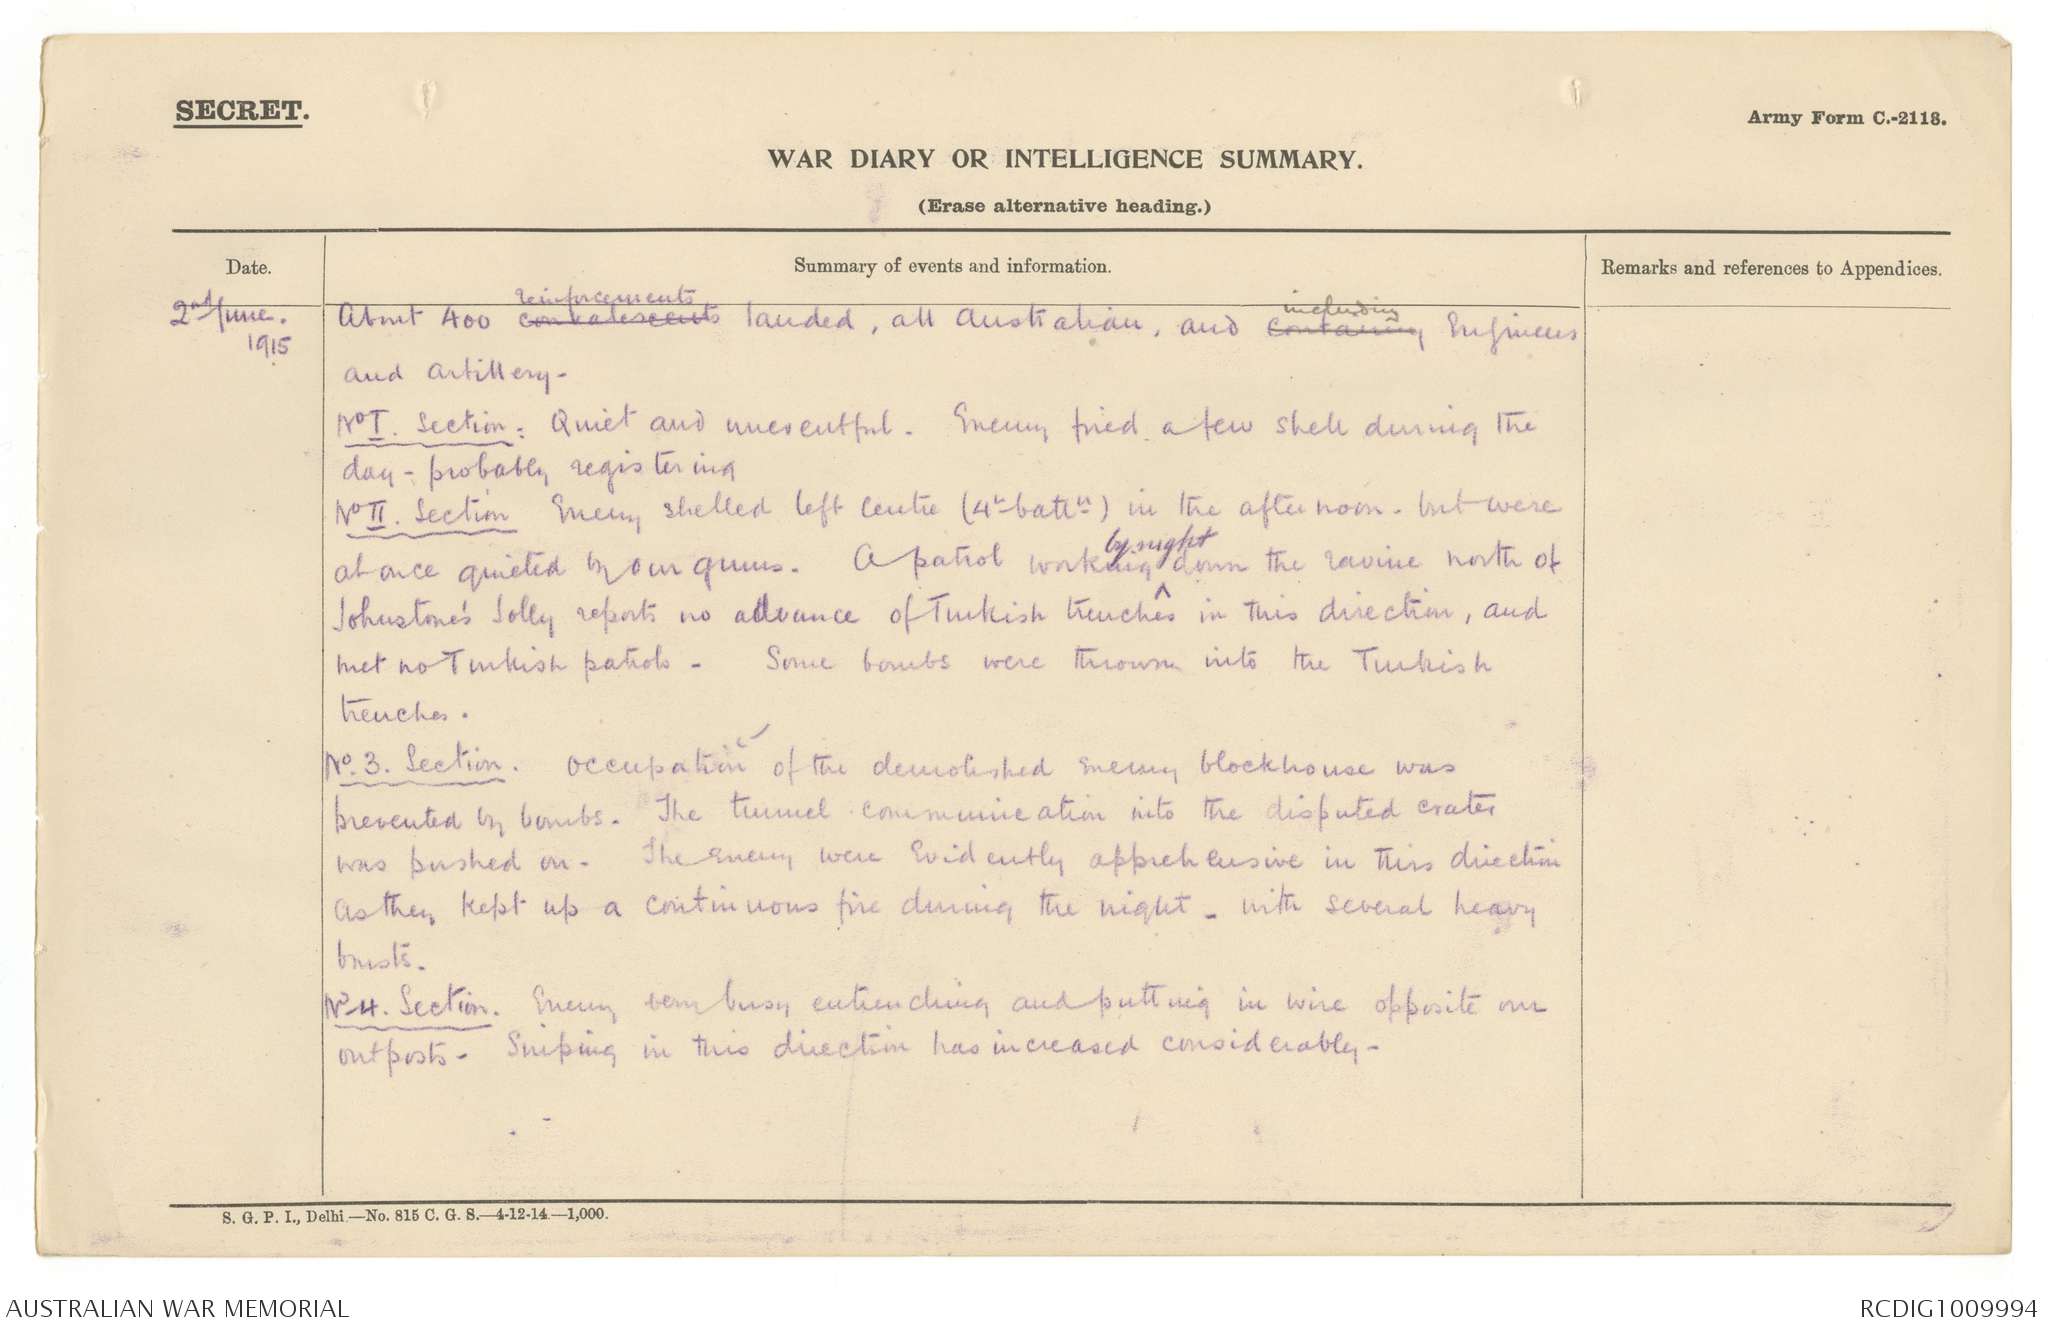 SECRET.
Army Form C.-2118.
WAR DIARY OR INTELLIGENCE SUMMARY.
(Erase alternative heading.)
Date.
Summary of events and information.
Remarks and references to Appendices.
2nd June.
1915
reinforcements including
About 400 convalescents landed, all Australian, and containing Engineers
and artillery-
No I. Section: Quiet and uneventful. Enemy fired a few shell during the
day - probably registering
No II. Section Enemy shelled left centre (4th battn) in the afternoon - but were
by night
at once quieted by our guns. A patrol working down the ravine north of
Johnstone's Jolly reports no advance of Turkish trenches in this direction, and
met no Turkish patrols - Some bombs were thrown into the Turkish
trenches.
No. 3. Section. Occupation of the demolished enemy blockhouse was
prevented by bombs. The tunnel communication into the disputed crater
was pushed on - The enemy were evidently apprehensive in this direction
as they kept up a continuous fire during the night - with several heavy
bursts.
No 4. Section. Enemy very busy entrenching and putting in wire opposite our
outposts - Sniping in this direction has increased considerably -
S. G. P. I., Delhi.—No. 815 C. G. S.—4-12-14.—1,000.
AUSTRALIAN WAR MEMORIAL
RCDIG1009994